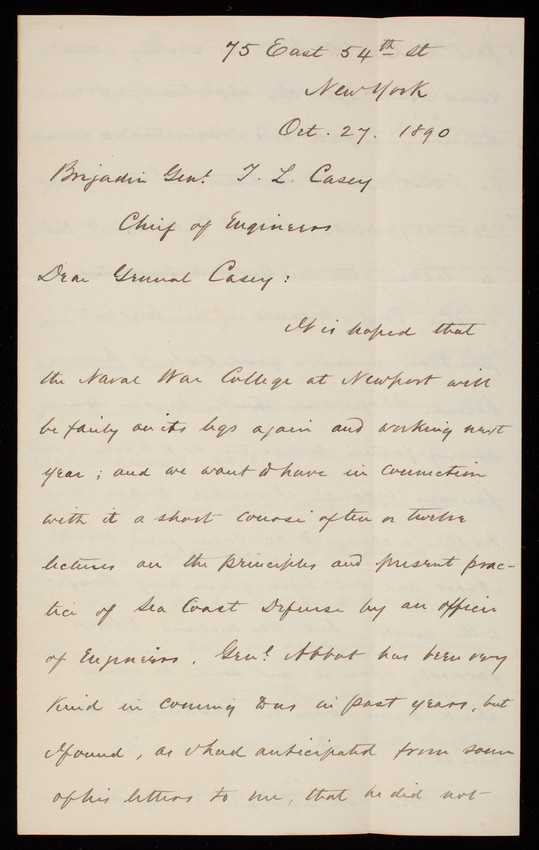 75 East 54th St
New York
Oct. 27. 1890
Brigadier Genl. T. L. Casey
Chief of Engineers
Dear General Casey:
It is hoped that
the Naval War College at Newport will
be fairly on its legs again and working next
year; and we want to have in connection
with it a short course of ten or twelve
lectures on the principles and present prac-
tice of Sea Coast Defense by an officer
of Engineers. Genl. Abbot has been very
kind in coming to us in past years, but
I found, as I had anticipated from some
of his letters to me, that he did not